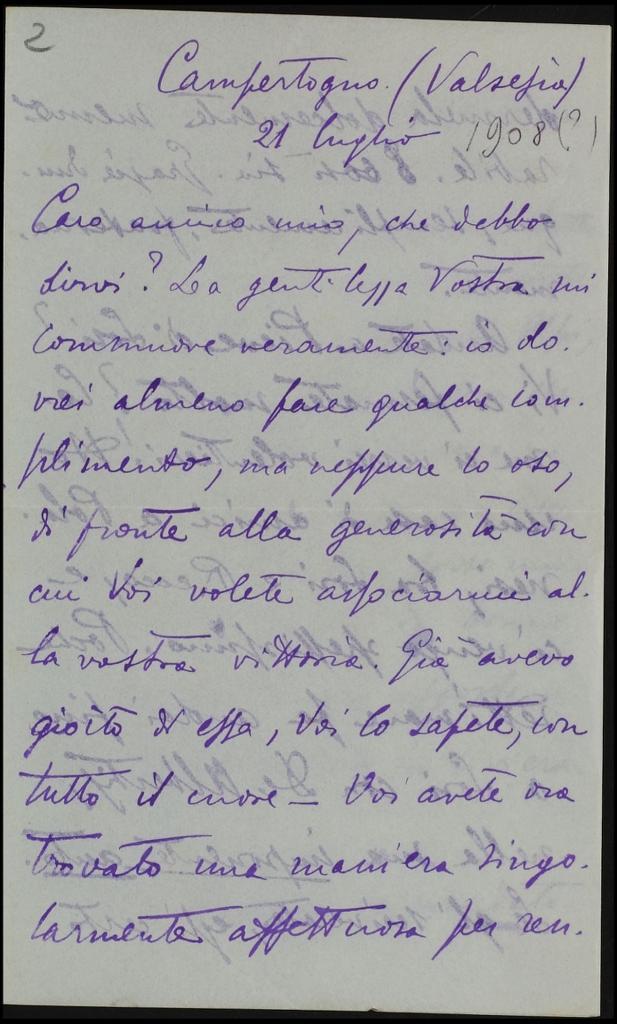 2
Campertogno. (Valsesia)
21 luglio 1908 (?)
Caro amico mio, che debbo
dirvi? La gentilezza Vostra mi
commuove veramente: io do-
vrei almeno fare qualche com-
plimento, ma neppure lo oso,
di fronte alla generosità con
cui Voi volete associarmi al-
la vostra vittoria. Già avevo
gioito di essa, Voi lo sapete, con
tutto il cuore – Voi avete ora
trovato una maniera singo-
larmente affettuosa per ren-